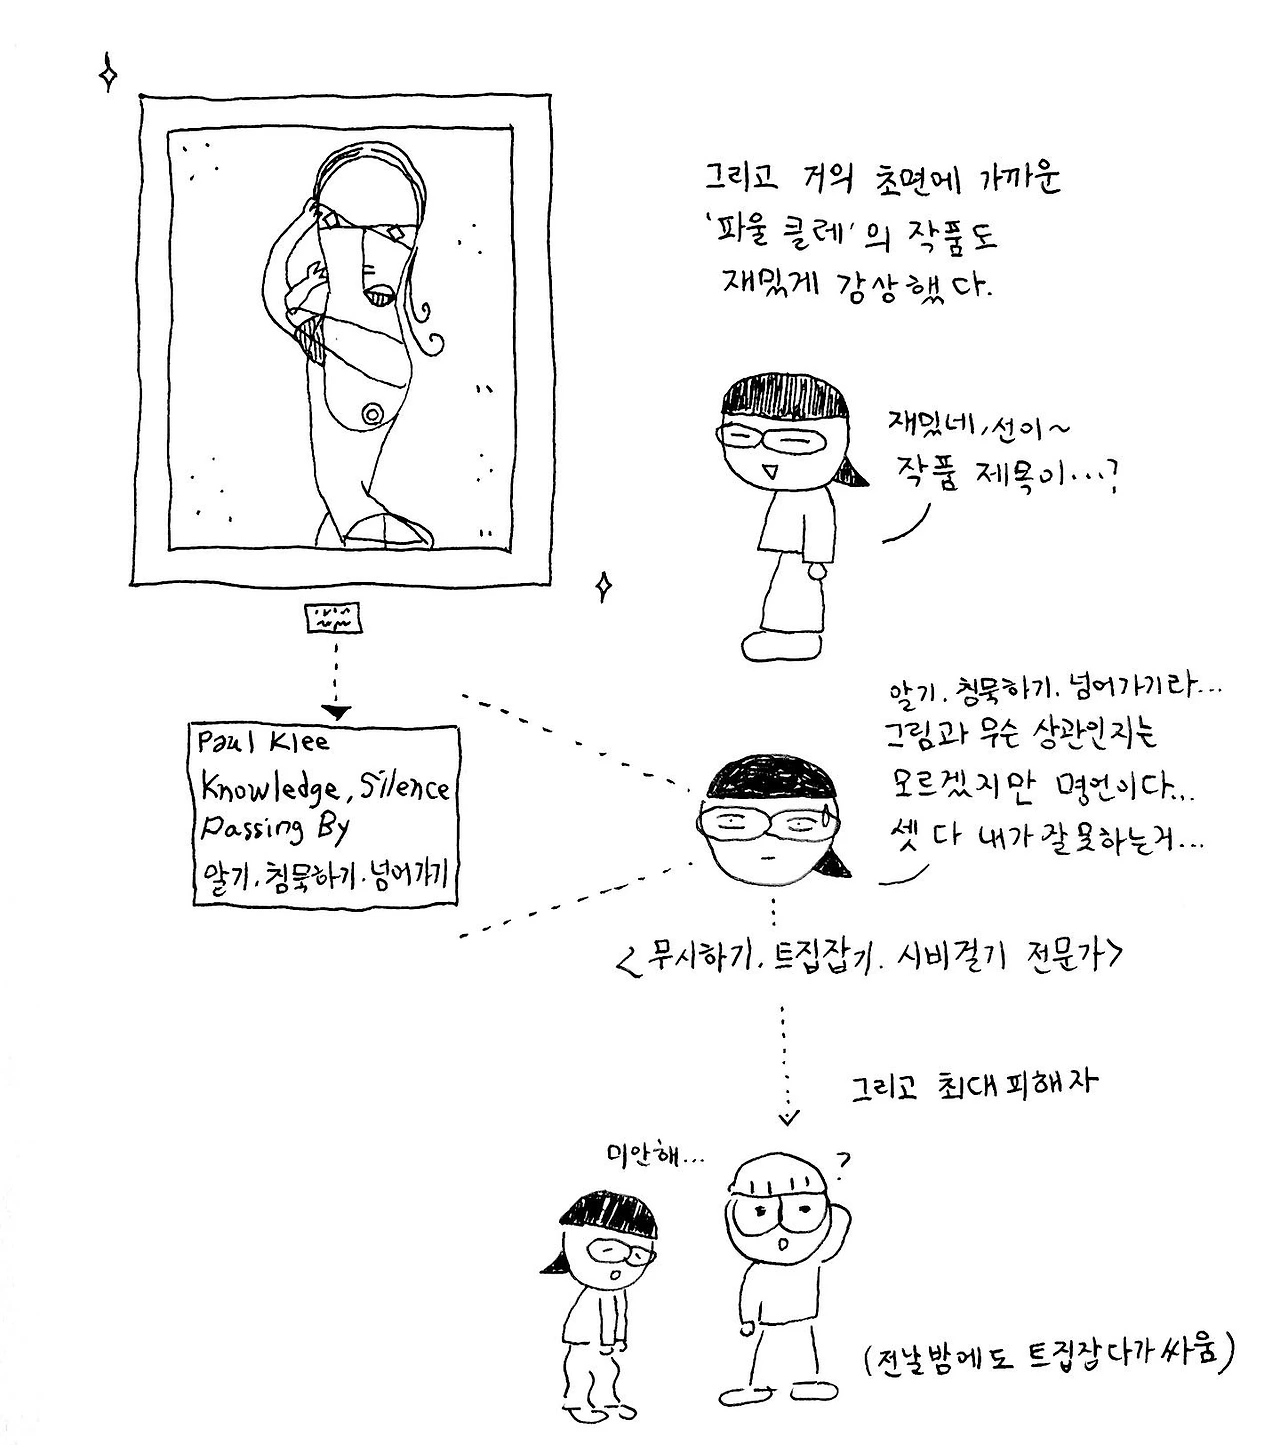 그리고 거의 초면에 가까운
'파울 클레'의 작품도
재밌게 감상했다.
재밌네, 선이~
작품 제목이...?
Paul Klee
Knowledge, Silence
Passing By
알기. 침묵하기. 넘어가기
알기. 침묵하기. 넘어가기라...
그림과 무슨 상관인지는
모르겠지만 명언이다...
셋 다 내가 잘 못하는거...
<무시하기. 트집잡기. 시비걸기 전문가>
그리고 최대피해자
미안해...
?
(전날밤에도 트집잡다가 싸움)